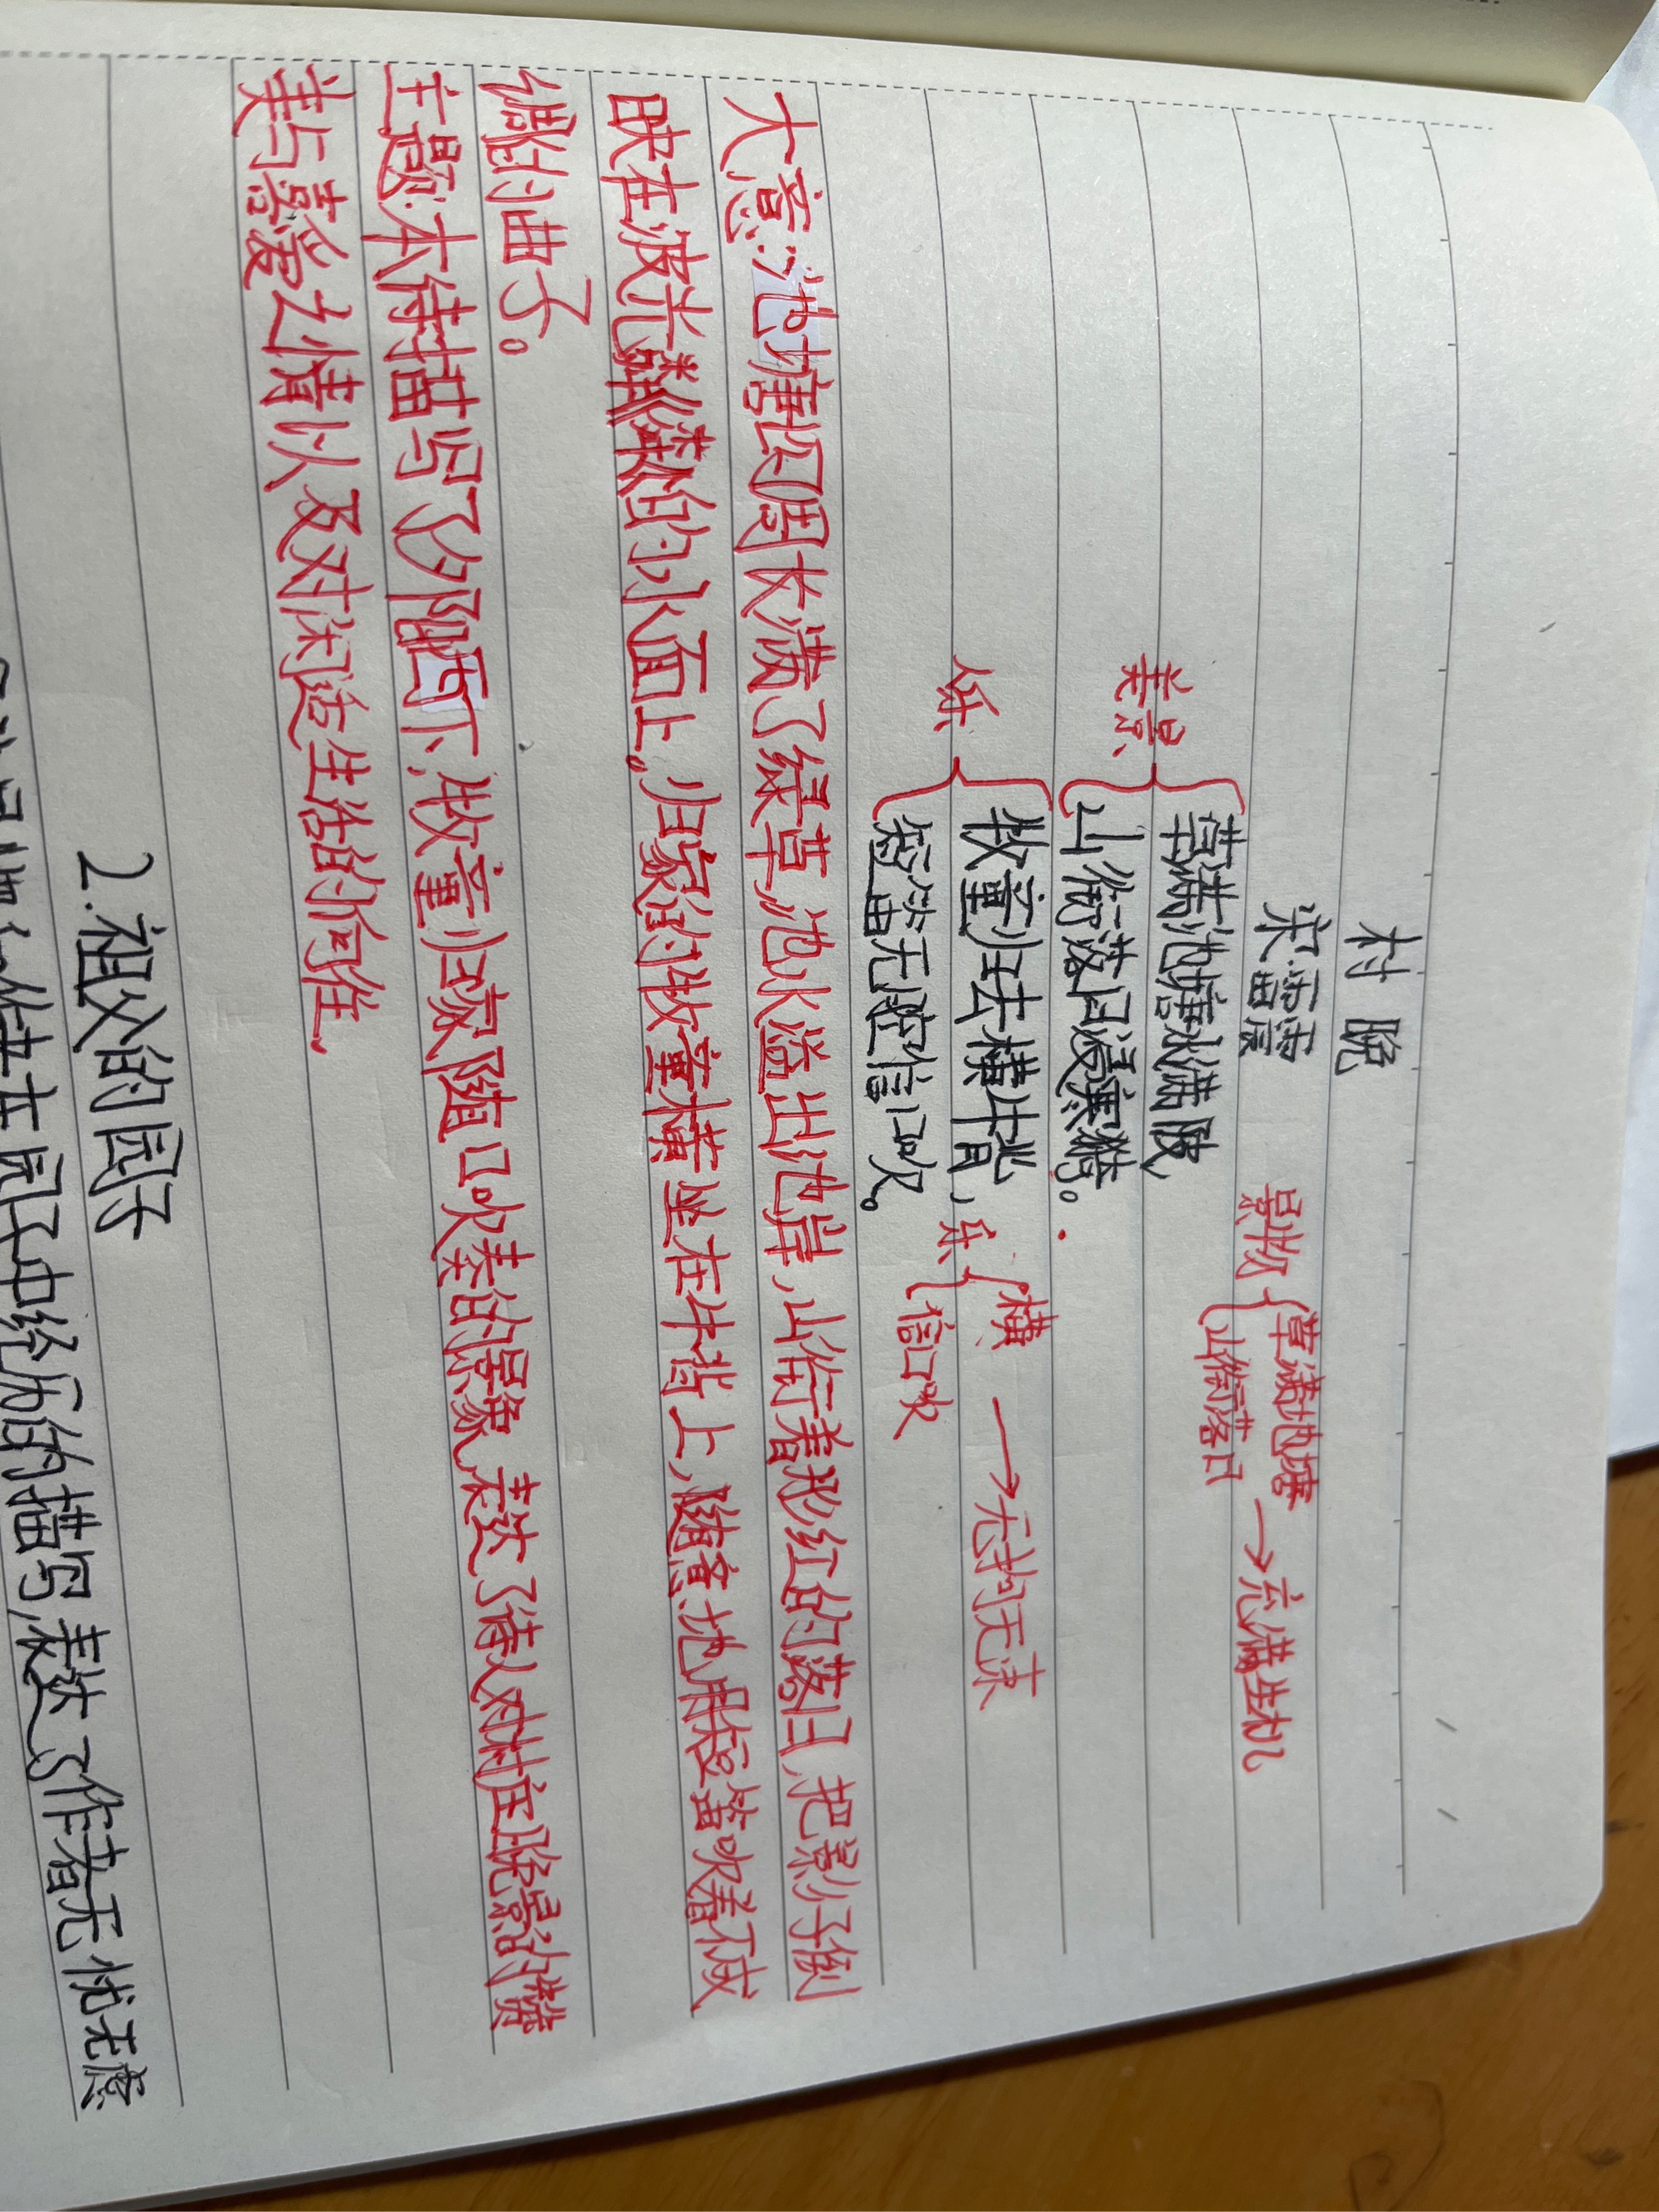 村晚
宋·雷震
草满池塘水满陂，
山衔落日浸寒漪。
牧童归去横牛背，
短笛无腔信口吹。
美景
人乐
景物
草满池塘
山衔落日
→充满生机
乐
横
信口吹
→无拘无束
大意:池塘四周长满了绿草,池水溢出池岸,山衔着彤红的落日,把影子倒
映在波光粼粼的水面上。归家的牧童横坐在牛背上,随意地用短笛吹着不成
调的曲子。
主题:本诗描写了夕阳西下,牧童归家随口吹奏的景象,表达了诗人对村庄晚景的赞
美与喜爱之情以及对闲适生活的向往.
2.祖父的园子
作者在园子中经历的描写,表达了作者无忧无虑